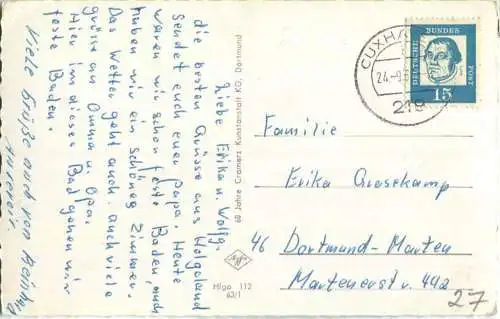 Liebe Erika u. Wolfg.
die besten Grüsse aus Helgoland
sendet euch euer Papa. Heute
waren wir schon feste Baden, auch
haben wir ein schönes Zimmer.
Das Wetter geht auch. auch viele
grüsse an Omma u. Opa.
Hir in diesen Bad gehen wir
feste Baden.
Viele Grüße auch von Reinhard
unserer.
60 Jahre Cramers Kunstanstalt KG, Dortmund
Agfa
Hlgo 112
63/1
CUXHA
24.-9.
219
DEUTSCHE BUNDES POST
15
Familie
Erika Giesekamp
46 Dortmund-Marten
Martenerstr. 49a
27